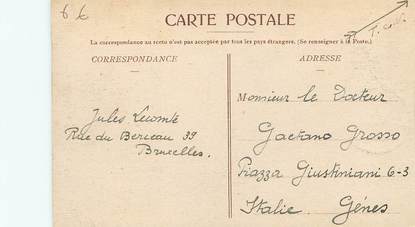 6 6
CARTE POSTALE
La correspondance au recto n'est pas acceptée par tous les pays étrangers. (Se renseigner à la Poste.)
CORRESPONDANCE
Jules Lecomte
Rue du Berceau 39
Bruxelles.
ADRESSE
Monsieur le Docteur
Gaetano Grosso
Piazza Giustiniani 6-3
Italie Gênes